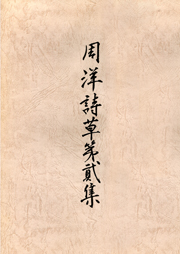 周洋詩草第貳集